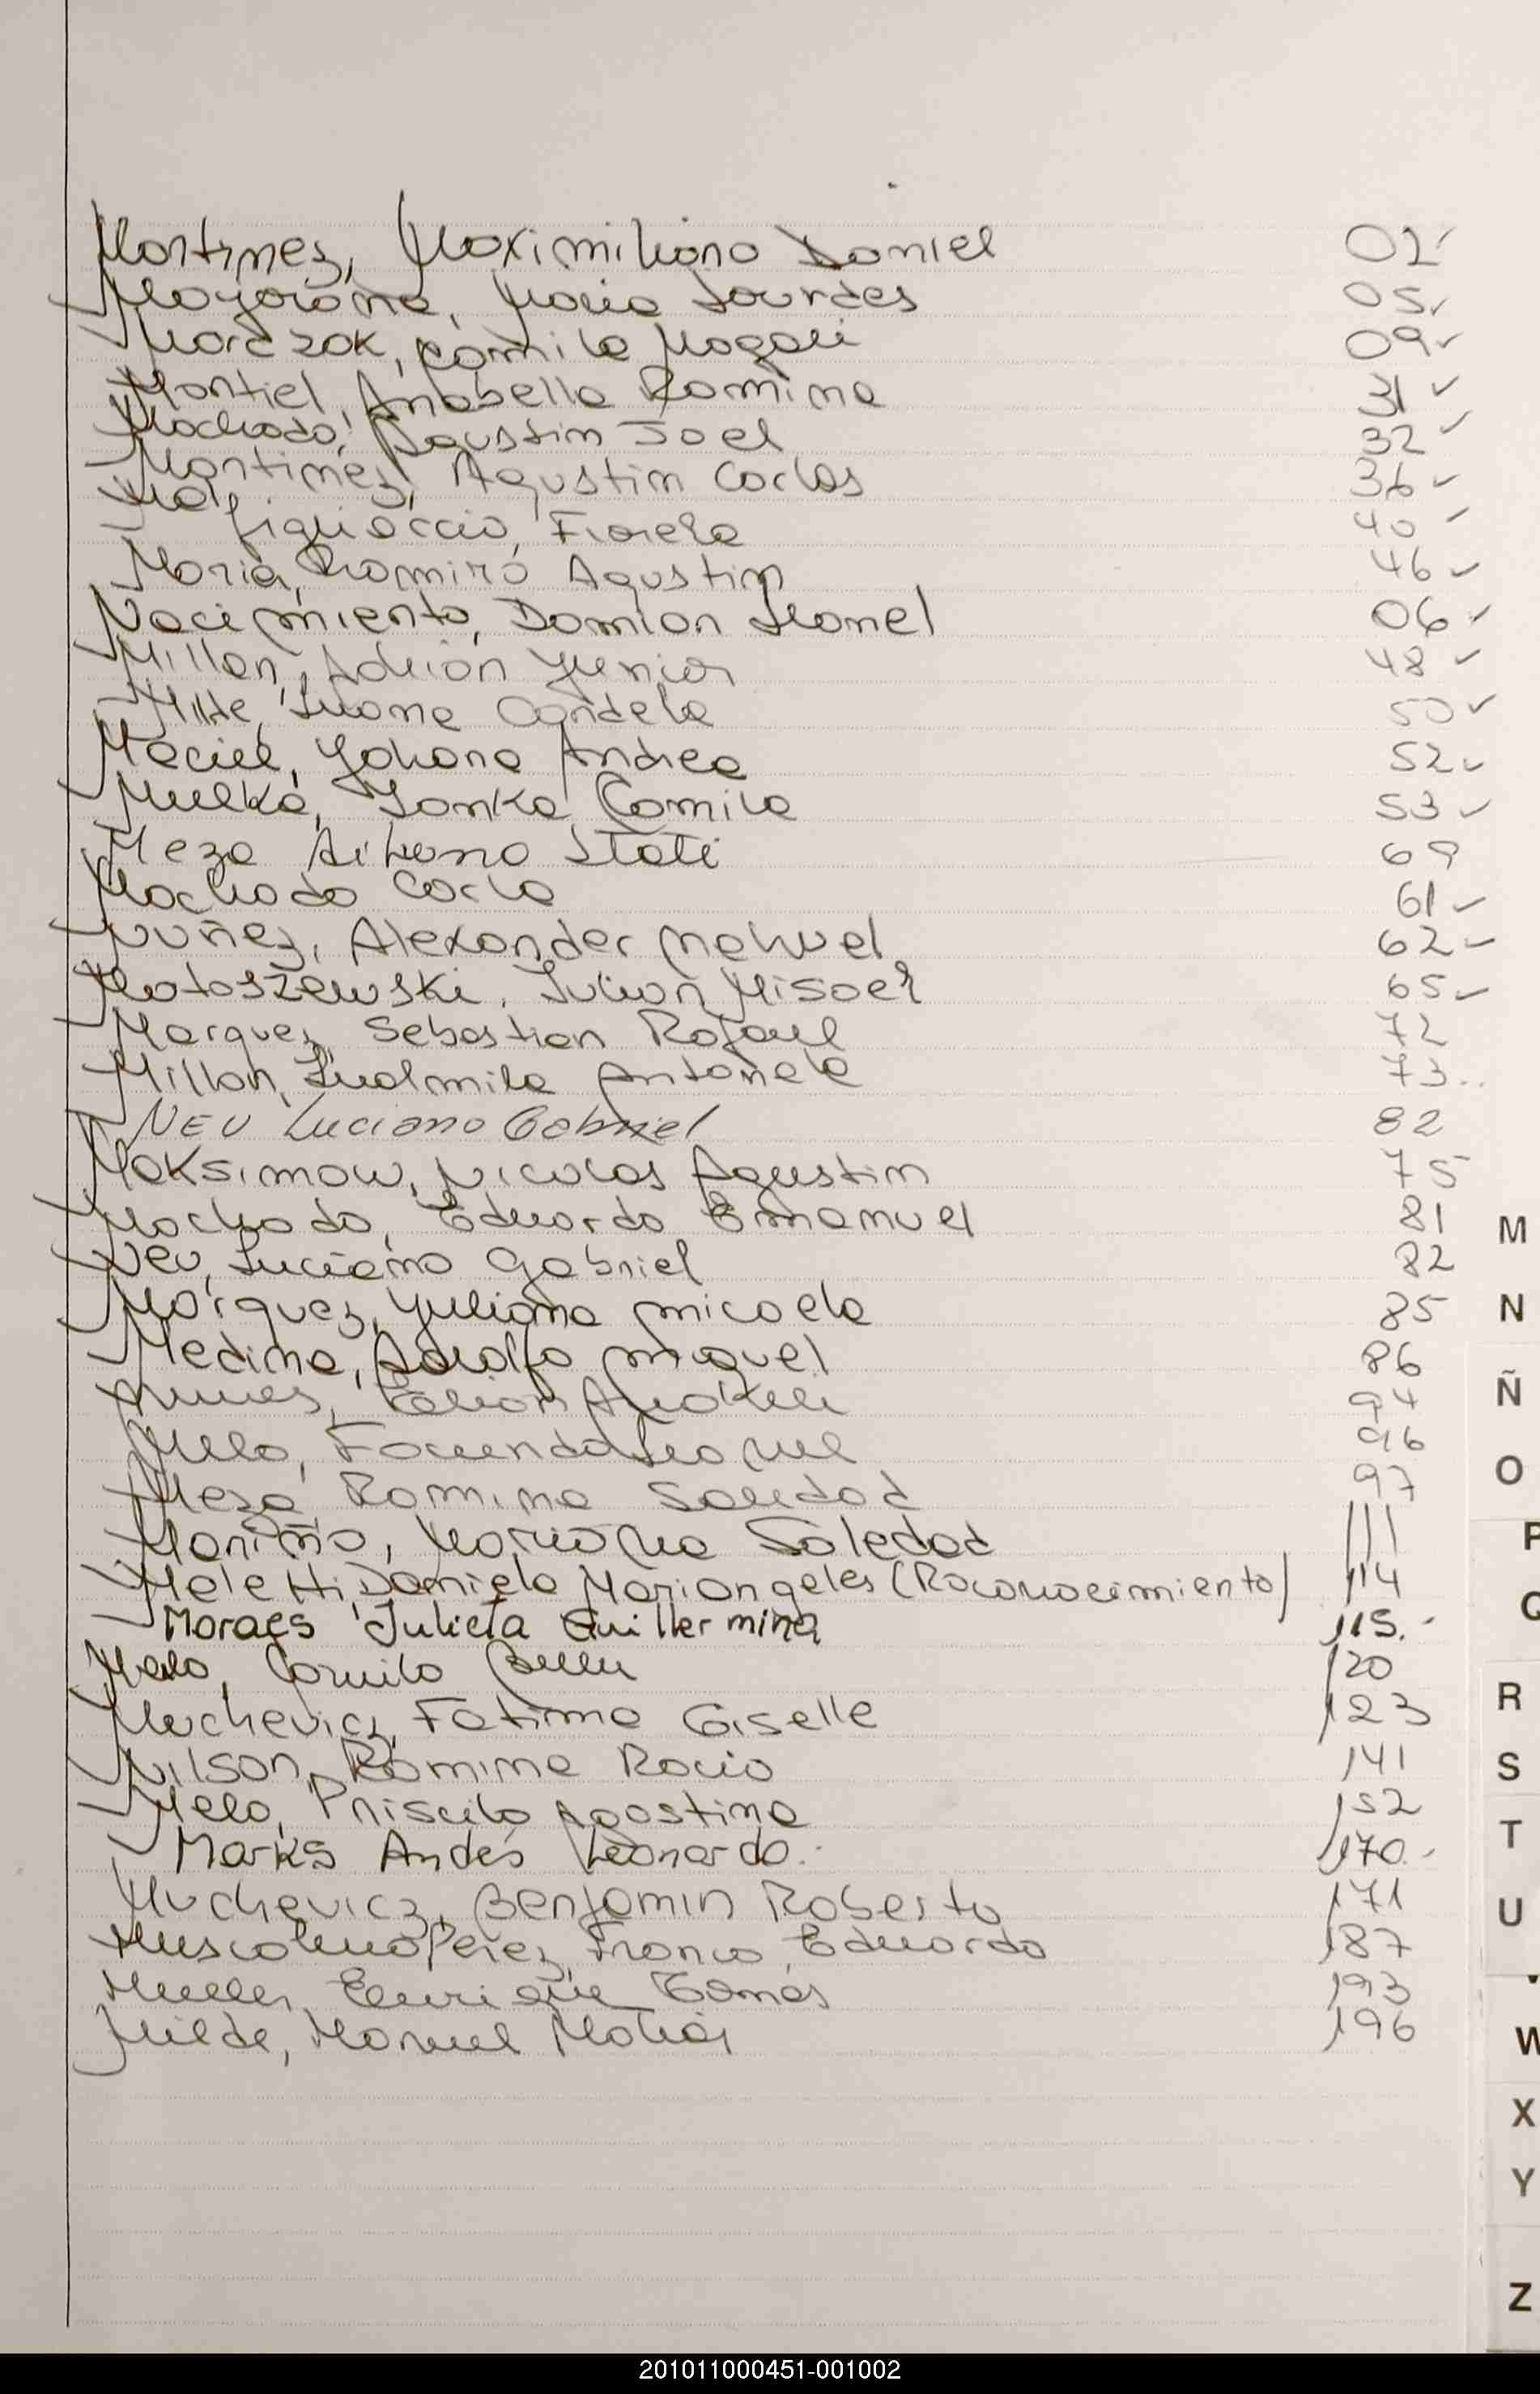 Martinez, Maximiliano Daniel 02
Mayorana, Maria Lourdes 05
Marczok, Camila Magali 09
Montiel, Anabella Romina 31
Machado, Agustin Joel 32
Martinez, Agustin Carlos 36
Malfigliaccio, Fiorela 40
Maria, Ramiro Agustin 46
Nacimiento, Damian Leonel 06
Millan, Adrian Yunior 48
Milde, Luana Candela 50
Maciel, Yohana Andrea 52
Mulka, Tanka Camila 53
Meza Aihana Stati 69
Machado Carla 61
Nuñez, Alexander Nahuel 62
Matoszewski, Julian Misael 65
Marquez, Sebastian Rafael 72
Millan, Ludmila Antonela 73
NEU Luciano Gabriel 82
Maksimow, Nicolas Agustin 75
Machado, Eduardo Emanuel 81
Neu, Luciano Gabriel 82
Marquez, Yuliana Micaela 85
Medina, Adolfo Miguel 86
Nunes, Fabian 94
Melo, Facundo 96
Meza Romina Soledad 97
Mariño, Mariana Soledad 111
Meletti, Daniela Mariangeles (Roconocimiento) 114
Moraes Julieta Guillermina 115.
Melo, Camila Belen 120
Muchevicz, Fatima Giselle 123
Nilson, Romina Rocio 141
Melo, Priscila Agostina 152
Marks Andés Leonardo. 170.
Muchevicz, Benjamin Roberto 171
Muscolino Perez, Franco, Eduardo 187
Muller, Enrique Tomas 193
Milde, Manuel Matias 196
M
N
Ñ
O
P
Q
R
S
T
U
W
X
Y
Z
201011000451-001002